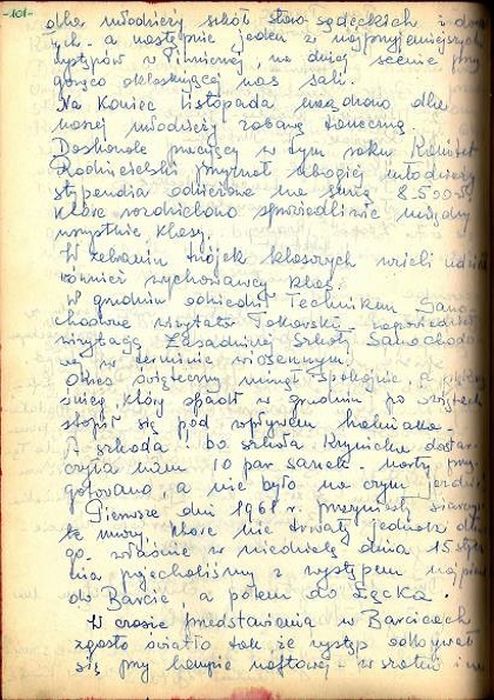 -101-
dla młodzieży szkół staro-sądeckich i doro
łych - a następnie jeden z najprzyjemniejszych
występów w Piwnicznej, na dużej scenie przy
gorąco oklaskującej nas sali.
Na koniec listopada urządzono dla
naszej młodzieży zabawę taneczną.
Doskonale pracujący w tym roku Komitet
Rodzicielski przyznał ubogiej młodzieży
stypendia odzieżowe na sumę 8.500 zł,
które rozdzielono sprawiedliwie między
wszystkie klasy.
W zebraniu trójek klasowych wzięli udział
również wychowawcy klas.
W grudniu odwiedził Technikum Samo
chodowe wizytator Tokarski - zapowiedział
wizytację Zasadniczej Szkoły Samochodo
wej w terminie wiosennym.
Okres świąteczny minął spokojnie, a piękny
śnieg, który spadł w grudniu po świętach
stopił się pod wpływem halniaka.
A szkoda, bo szkoła Krynicka dostar
czyła nam 10 par sanek - narty przy
gotowano, a nie było na czym jeździć
Pierwsze dni 1961 r. przyniosły siarczys
te mrozy, które nie trwały jednak dłu
go - właśnie w niedzielę dnia 15 stycz
nia pojechaliśmy z występem najpierw
do Barcic, a potem do Łącka.
W czasie przedstawienia w Barcicach
zgasło światło tak, że występ odbywał
się przy lampie naftowej - w szatni i na